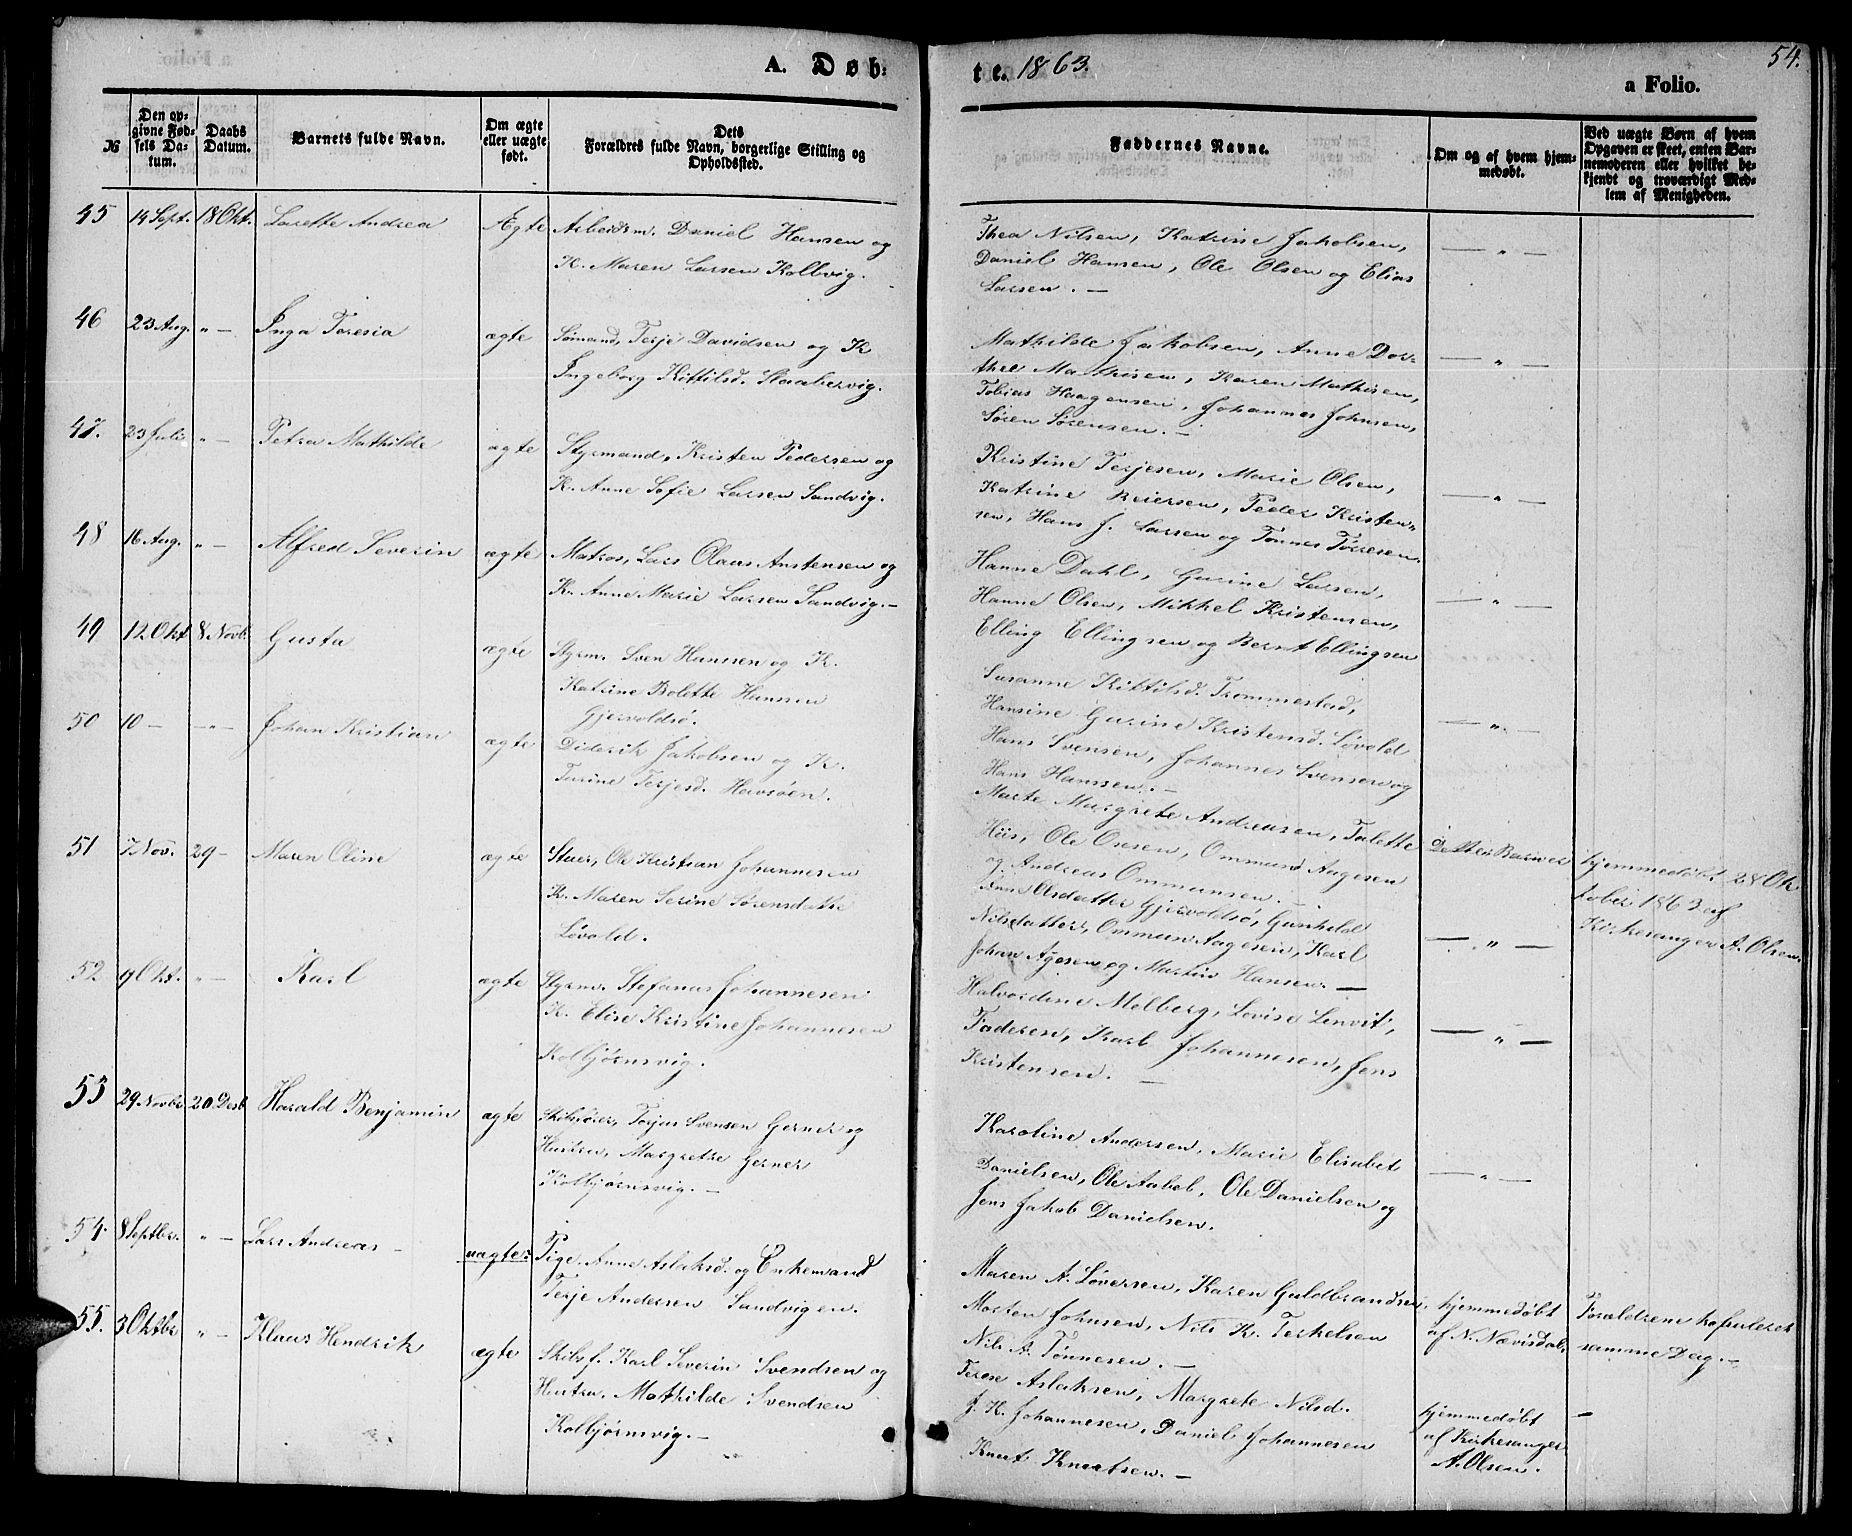 A. Døb-
te. 1863.
54.
a Folio.
№
Den op-
givne Fød-
sels Da-
tum.
Daabs
Datum.
Barnets fulde Navn.
Om ægte
eller uægte
født.
Dets
Forældres fulde Navn, borgerlige Stilling og
Opholdssted.
Faddernes Navne.
Om og af hvem hjem-
medøbt.
Ved uægte Børn af hvem
Opgaven er skeet, enten Bar-
nemoderen eller hvilket be-
kjendt og troværdigt Med-
lem af Menigheden.
45 14 Sept. 18 Okt. Larette Andrea Ægte Arbeidsm. Daniel Hansen og
K. Maren Larsen Kolbvig.
Thea Nilsen, Katrine Jakobsen,
Daniel Hansen, Ole Olsen og Elias
Larsen. —
— " —
46 23 Aug. " — Inga Toresia ægte Sømand, Terje Davidsen og K
Ingeborg Kittilsd. Skaabervig.
Mathilde Jakobsen, Anne Dor-
thee Mathisen, Karen Mathisen,
Tobias Haagensen, Johannes Johnsen,
Søren Sørensen. —
— " —
47. 23 Juli " — Petra Mathilde ægte Styrmand, Kristen Pedersen og
K. Anne Sofie Larsen Sandvig.
Kristine Terjesen, Marie Olsen,
Katrine Reiersen, Peder Kristen-
sen, Hans J. Larsen og Tønnes Tørresen.
— " —
48 16 Aug. " — Alfred Severin ægte Matros, Lars Olaus Anstensen og
K. Anne Marie Larsen Sandvig. —
Hanne Dahl, Gurine Larsen,
Hanne Olsen, Mikkel Kristensen,
Elling Ellingsen og Bernt Ellingsen
— " —
49 12 Okt 8 Novb. Gusta ægte Styrm. Sven Hansen og K.
Katrine Bolette Hansen
Gjervoldsø.
Susanne Kittilsd. Trommestad,
Hansine Gurine Kristensd. Løvold
Hans Svensen, Johannes Svensen og
Hans Hansen. —
— " —
50 10 — — " — Johan Kristian ægte Diderik Jakobsen og K.
Turine Terjesd. Havsøen.
Marte Margrete Andreasen, Talette
Hiis, Ole Osesen, Ommund Aagesen
og Andreas Ommunsen. —
Dette Barn er hjemmedøbt 28 Ok
tober 1863 af
Kirkesanger A. Olsen.
51 7 Nov. 29 — Maren Oline ægte Stuer, Ole Kristian Johannesen
K. Maren Serine Sørensdatte
Løvold.
Anne Olsdatter Gjervoldsø, Gunhild
Nilsdatter, Ommun Aagesen, Karl
Johan Agesen og Martin Hansen. —
— " —
52 9 Okt. " — Karl ægte Styrm. Stefanus Johannesen
K. Elise Kristine Johannesen
Kolbjørnsvig.
Halvordine Melberg, Lovise Lenvit,
Federsen, Karl Johannesen, Jens
Kristensen. —
— " —
53 29 Novbr 20 Desb. Harald Benjamin ægte Skibsfører, Torjus Svensen Gerner og
Hustru, Margrethe Gerner
Kolbjørnsvig. —
Karoline Andersen, Marie Elisabet
Danielsen, Ole Aabel, Ole Danielsen og
Jens Jakob Danielsen.
— " —
54. 8 Septbr. " — Lars Andreas — uægte: Pige Anne Aslaksd. og Enkemand
Terje Andersen Sandvigen.
Maren A. Løversen, Karen Guldbrandsen
Morten Johnsen, Nils K. Terkelsen
Nils A. Tønnesen. —
hjemmedøbt
af N. Nævisdal.
Forældrene kopuleret
samme Dag. —
55. 3 Oktbr " — Klaus Hendrik ægte Skibsf. Karl Severin Svendsen og
Hustru, Mathilde Svendsen
Kolbjørnsvig. —
Terese Aslaksen, Margrete Nilsd.
J. K. Johannesen, Daniel Johannesen
Knut Knutsen. —
hjemmedøbt
af Kirkesanger
A. Olsen.
—